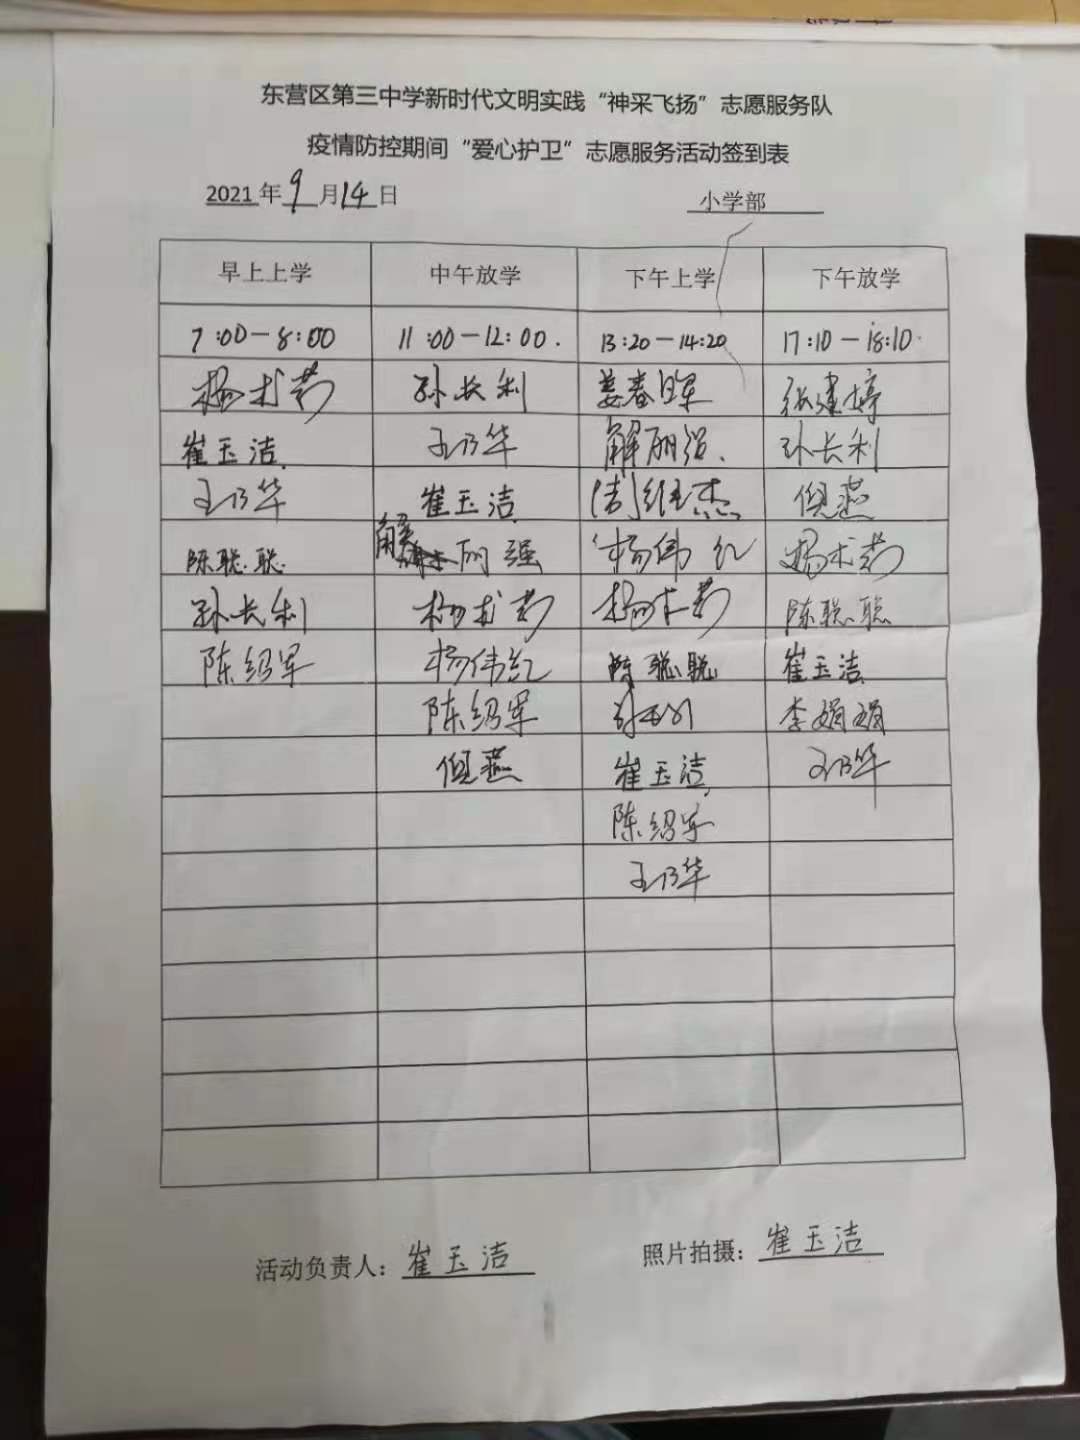 东营区第三中学新时代文明实践“神采飞扬”志愿服务队
疫情防控期间“爱心护卫”志愿服务活动签到表
2021年9月14日 小学部
早上上学 中午放学 下午上学 下午放学
7:00-8:00 11:00-12:00. 13:20-14:20 17:10-18:10.
杨术芳 孙长利 姜春晖 张建婷
崔玉洁. 王乃华 解丽强. 孙长利
王乃华 崔玉洁. 维杰 倪燕
陈聪聪 解丽强 杨伟红 杨术芳
孙长利 杨术芳 杨术芳 陈聪聪
陈绍军 杨伟红 陈聪聪 崔玉洁
陈绍军 李娟娟
倪燕 崔玉洁. 王乃华
陈绍军
王乃华
活动负责人：崔玉洁 照片拍摄：崔玉洁